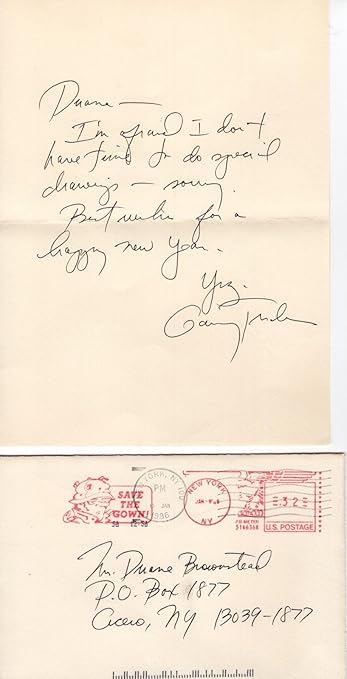 Duane —
I'm afraid I don't
have time to do special
drawings — sorry.
Best wishes for a
happy new year.
Yrs,
Garry Trudeau
SAVE
THE
GOWN!
YORK, NY 100
PM
JAN
1998
NEW YORK
JAN
NY
PB METER
5166368
32
U.S. POSTAGE
Mr. Duane Brownstead
P.O. Box 1877
Cicero, NY 13039-1877